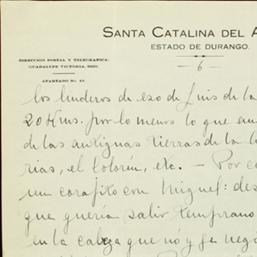 SANTA CATALINA DEL A
ESTADO DE DURANGO.
DIRECCION POSTAL Y TELEGRAFICA:
GUADALUPE VICTORIA, DGO.
APARTADO No. 40.
6
los linderos de eso de Luis de la
20 Kms. por lo menos lo que
de las antiguas tierras de la
rias, el etc. - Por
un con Miguel: des
que quería salir temprano
en la cabeza que no y se negó